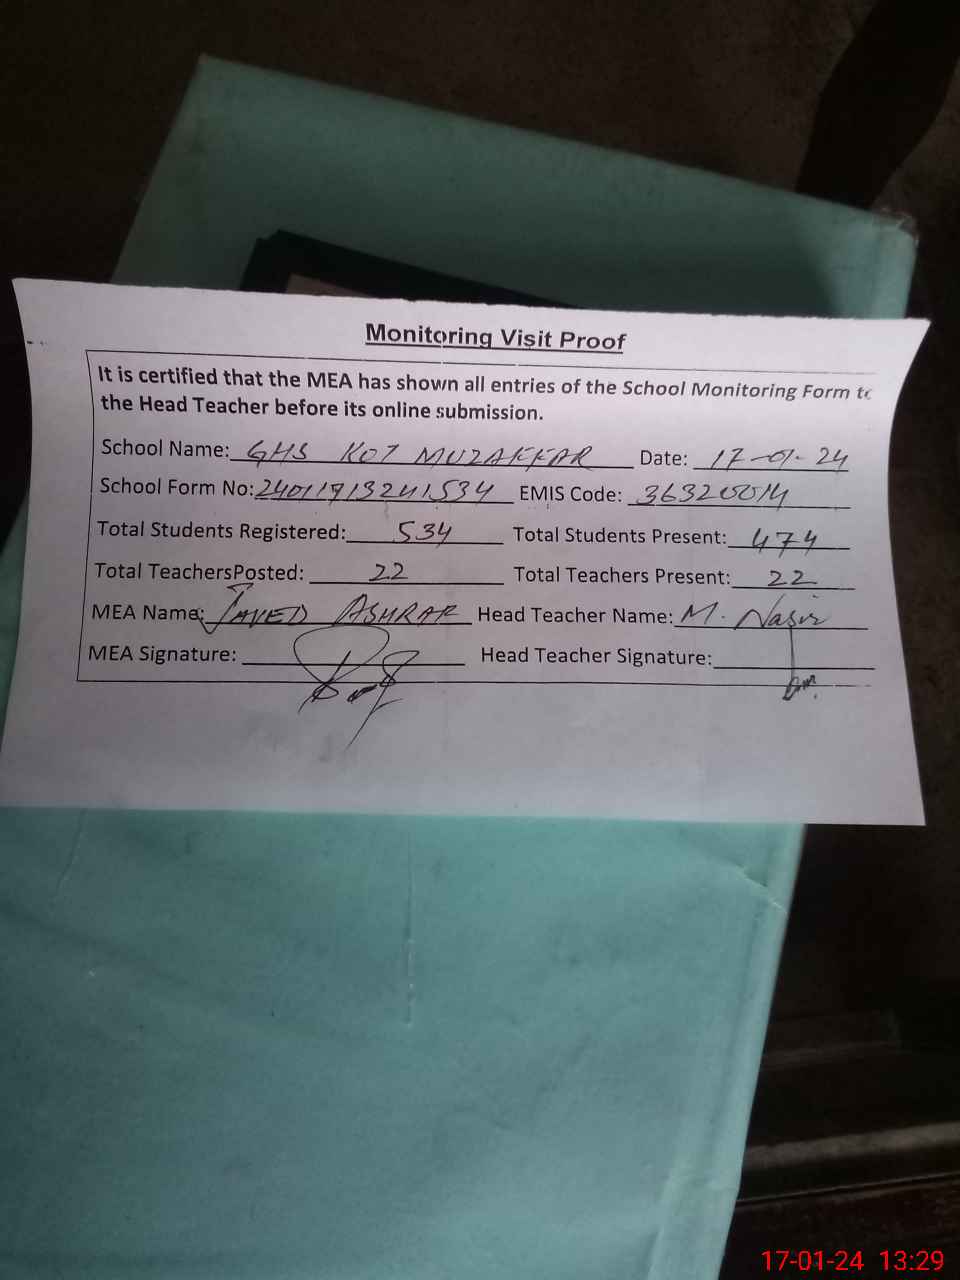 Monitoring Visit Proof
It is certified that the MEA has shown all entries of the School Monitoring Form to
the Head Teacher before its online submission.
School Name: GHS KOT MUZAFFAR Date: 17-01-24
School Form No: 24011913241534 EMIS Code: 36320014
Total Students Registered: 534 Total Students Present: 474
Total TeachersPosted: 22 Total Teachers Present: 22
MEA Name: JAVED ASHRAF Head Teacher Name: M. Nasir
MEA Signature: Head Teacher Signature:
17-01-24 13:29